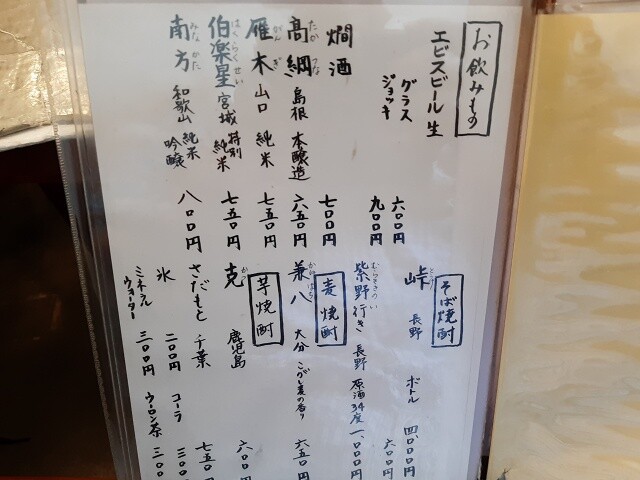 お飲みもの
エビスビール生
グラス 六〇〇円
ジョッキ 九〇〇円
燗酒 七〇〇円
高綱 島根 本醸造 六五〇円
雁木 山口 純米 七五〇円
伯楽星 宮城 特別純米 七五〇円
南方 和歌山 純米吟醸 八〇〇円
そば焼酎
峠 長野 六〇〇円
ボトル 四、〇〇〇円
紫野行き 長野 原酒34度 一、〇〇〇円
麦焼酎
兼八 大分 こがし麦の香り 六五〇円
芋焼酎
克 鹿児島 六〇〇円
さだもと 千葉 七五〇円
氷 二〇〇円
コーラ 三〇〇円
ミネラルウォーター 三〇〇円
ウーロン茶 三〇〇